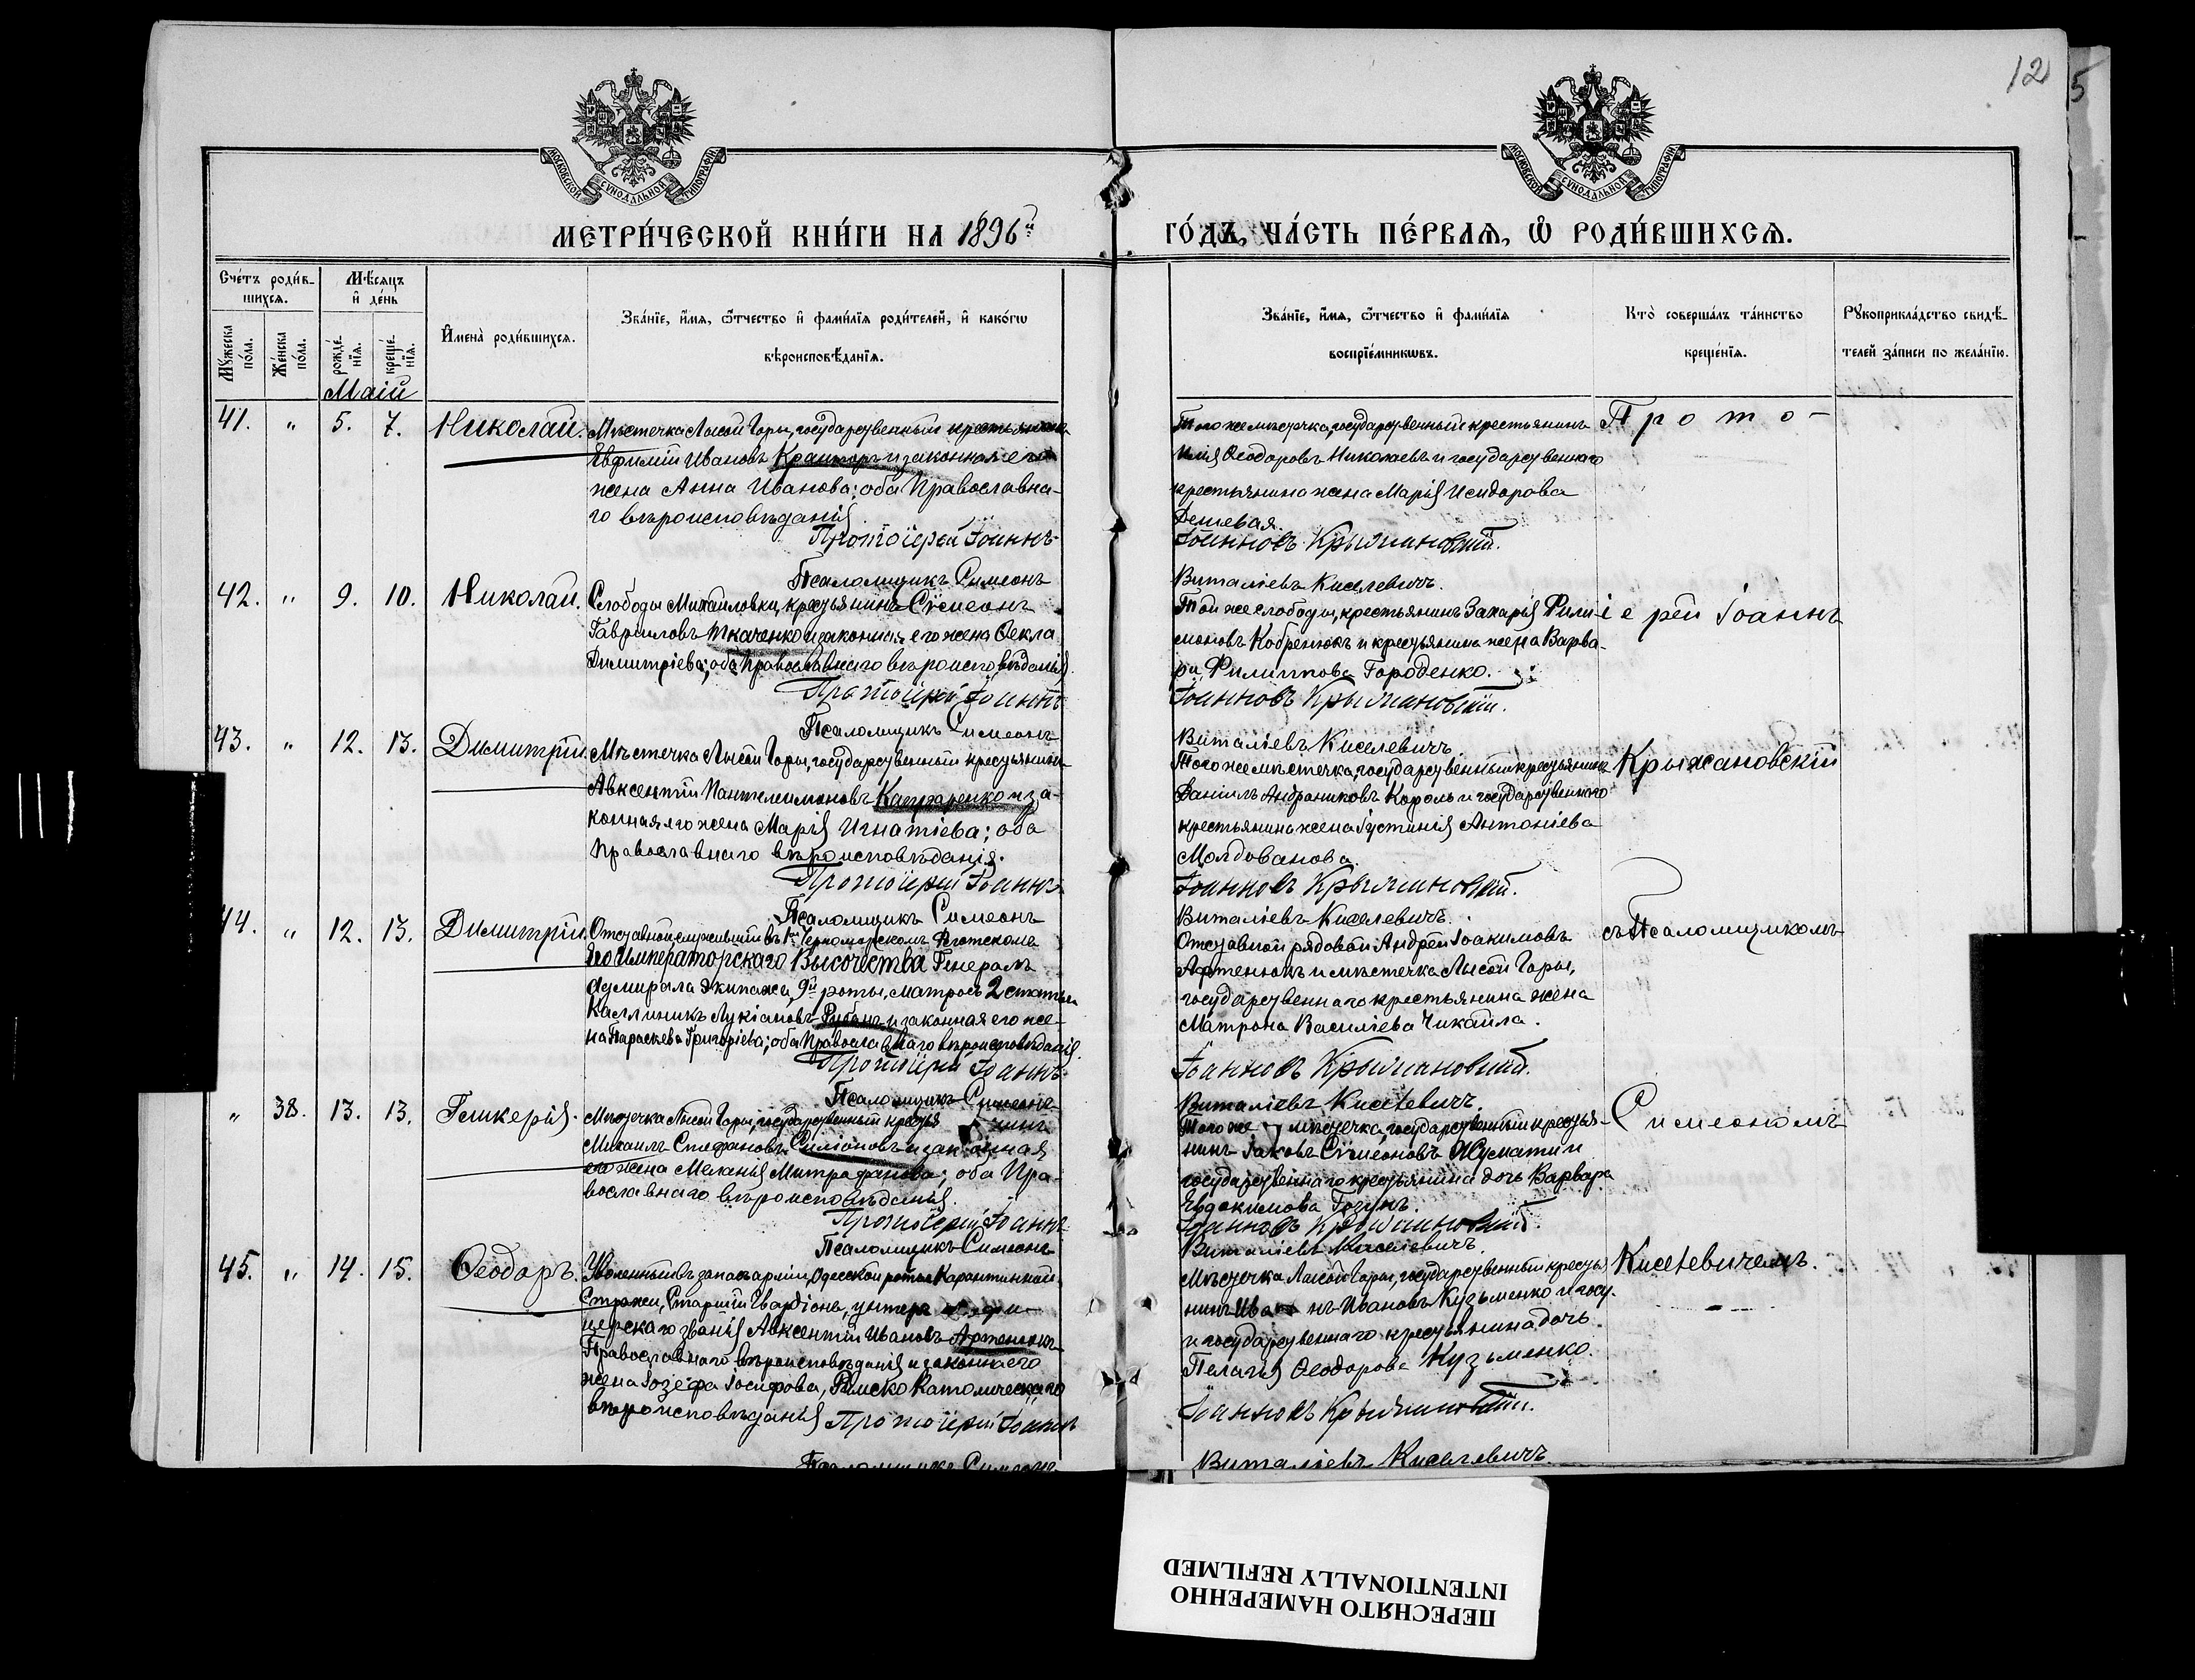 12
5
МОСКОВСКОЙ СѴНОДАЛЬНОЙ ТИПОГРАФІИ
МОСКОВСКОЙ СѴНОДАЛЬНОЙ ТИПОГРАФІИ
МЕТРИ́ЧЕСКОЙ КНИ́ГИ НА 1896й
ГО́ДЪ, ЧА́СТЬ ПЕ́РВАЯ, Ѡ РОДИ́ВШИХСЯ.
Сче́тъ роди́в-
шихся.
Мѣ́сяцъ
и҆ де́нь
Мꙋ́жеска по́ла.
Же́нска по́ла.
рожде́-
нїѧ.
креще́-
нїѧ.
И҆мена̀ роди́вшихся.
Зва́нїе, и҆́мя, ѻ҆́тчество и҆ фами́лїя роди́телей, и҆ како́гѡ
вѣроисповѣ́данїя.
Зва́нїе, и҆́мя, ѻ҆́тчество и҆ фами́лїя
воспрїе́мникѡвъ.
Кто̀ соверша́лъ та́инство
креще́нїя.
Рꙋкоприкла́дство свидѣ́-
телей за́писи по жела́нїю.
Маій
41. " 5. 7. Николай. Мѣстечка Лысой Горы, государственный крестьянинъ
Евфимій Ивановъ и законная его
жена Анна Иванова; оба Православна-
го вѣроисповѣданія
Протоіерей Іоаннъ
Псаломщикъ Симеонъ
Того же мѣстечка, государственный крестьянинъ
Илія Ѳеодоровъ Николаевъ и государственнаго
крестьянина жена Марія Исидорова
Дешевая.
Іоанновъ Крыжановскій.
Виталіевъ Киселевичъ.
Прото-
42. " 9. 10. Николай. Слободы Михайловки, крестьянинъ Сѵмеонъ
Гавриловъ Ткаченко и законная его жена Ѳекла
Димитріева; оба Православнаго вѣроисповѣданія
Протоіерей Іоаннъ
Псаломщикъ Симеонъ
Той же слободы, крестьянинъ Захарія Фили-
моновъ Кобренюкъ и крестьянина жена Варва-
ра Филиппова Городенко.
Іоанновъ Крыжановскій.
Виталіевъ Киселевичъ.
іерей Іоаннъ
43. " 12. 13. Димитрій. Мѣстечка Лысой Горы, государственный крестьянинъ
Авксентій Пантелимоновъ и за-
конная его жена Марія Игнатіева; оба
Православнаго вѣроисповѣданія.
Протоіерей Іоаннъ
Псаломщикъ Симеонъ
Того же мѣстечка, государственный крестьянинъ
Даніилъ Андрониковъ Король и государственнаго
крестьянина жена Іустинія Антоніева
Молдованова.
Іоанновъ Крыжановскій.
Виталіевъ Киселевичъ.
Крыжановскій
44. " 12. 13. Димитрій. Отставной, служившій въ 1мъ Черноморскомъ Флотскомъ
Его Императорскаго Высочества Генералъ
Адмирала экипажа, 9й роты, матросъ 2 статьи
Каллиникъ Лукіановъ Рубанъ и законная его же-
на Параскева Григоріева; оба Православнаго вѣроисповѣданія.
Протоіерей Іоаннъ
Псаломщикъ Симеонъ
Отставной рядовой Андрей Іоакимовъ
Артенюкъ и мѣстечка Лысой Горы,
государственнаго крестьянина жена
Матрона Василіева Чикаила.
Іоанновъ Крыжановскій.
Виталіевъ Киселевичъ.
съ Псаломщикомъ
" 38. 13. 13. Гликерія. Мѣстечка Лысой Горы, государственный крестья-
нинъ
Михаилъ Стефановъ Симіоновъ и законная
его жена Меланія Митрофанова; оба Пра-
вославнаго вѣроисповѣданія.
Протоіерей Іоаннъ
Псаломщикъ Симеонъ
Того же мѣстечка, государственный крестья-
нинъ Іаковъ Сѵмеоновъ и
государственнаго крестьянина дочь Варвара
Евдокимова
Іоанновъ Крыжановскій.
Виталіевъ Киселевичъ.
Симеономъ
45. " 14. 15. Ѳеодоръ. Уволенный въ запасъ арміи, Одесской роты Карантинной
Стражи, Старшій Гвардіонъ, унтеръ офи-
церскаго званія Авксентій Ивановъ Артенюкъ
Православнаго вѣроисповѣданія и законная его
жена Іозефа Іосифова, Римско Католическаго
вѣроисповѣданія Протоіерей Іоаннъ
Псаломщикъ Симеонъ
Мѣстечка Лысой Горы, государственный кресть-
нинъ Иванъ Ивановъ Кузьменко и госу-
и государственнаго крестьянина дочь
Пелагія Ѳеодорова Кузьменко.
Іоанновъ Крыжановскій.
Виталіевъ Киселевичъ
Киселевичемъ.
ПЕРЕСНЯТО НАМЕРЕННО
INTENTIONALLY REFILMED